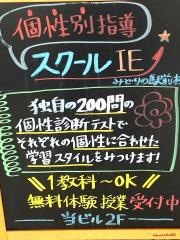 個性別指導
スクールIE
みどりの駅前校
独自の200問の
個性診断テストで
それぞれの個性に合わせた
学習スタイルをみつけます!
\\1教科~OK//
無料体験授業受付中
当ビル2F